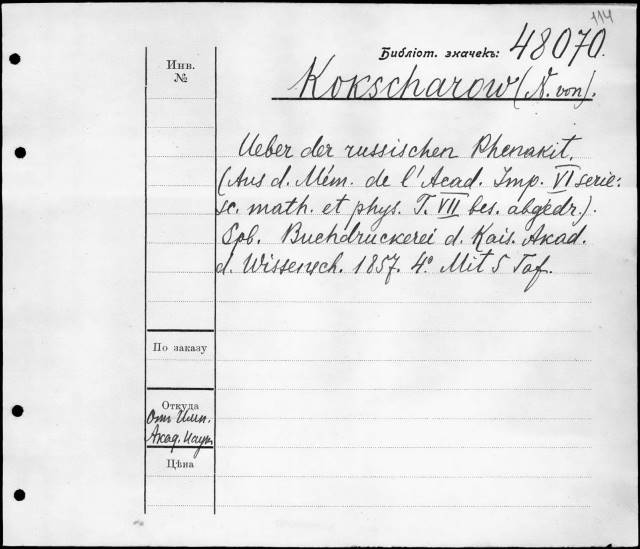 114
Библіот. значекъ: 48070.
Инв.
№
Kokscharow (N. von).
Ueber der russischen Phenakit.
(Aus d. Mém. de l'Acad. Imp. VI serie:
sc. math. et phys. T. VII bes. abgedr.).
Spb. Buchdruckerei d. Kais. Akad.
d. Wissensch. 1857. 4° Mit 5 Taf.
По заказу
Откуда
От Имп.
Акад. Наук
Цѣна